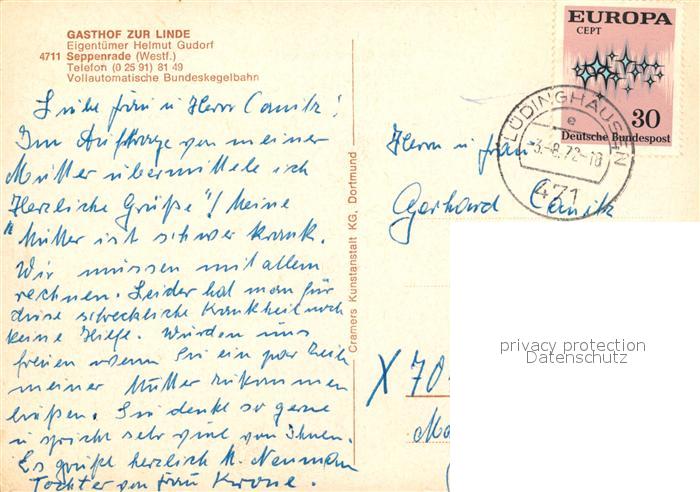 GASTHOF ZUR LINDE
Eigentümer Helmut Gudorf
4711 Seppenrade (Westf.)
Telefon (0 25 91) 81 49
Vollautomatische Bundeskegelbahn
Liebe Frau u Herr Canitz!
Im Auftrage von meiner
Mutter übermittele ich
Herzliche Grüße"! Meine
"Mutter ist schwer krank.
Wir müssen mit allem
rechnen. Leider hat man für
diese schreckliche Krankheit noch
keine Hilfe. Würden uns
freuen wenn Sie ein par Zeilen
meiner Mutter zukommen
ließen. Sie denkt so gerne
u spricht sehr viel von Ihnen.
Es grüßt herzlich M. Neumann
Tochter von Frau Krone.
Cramers Kunstanstalt KG, Dortmund
EUROPA
CEPT
30
Deutsche Bundespost
LÜDINGHAUSEN
e
-3.-8.72-18
471
Herrn u Frau
Gerhard Canitz
privacy protection
Datenschutz
X 70